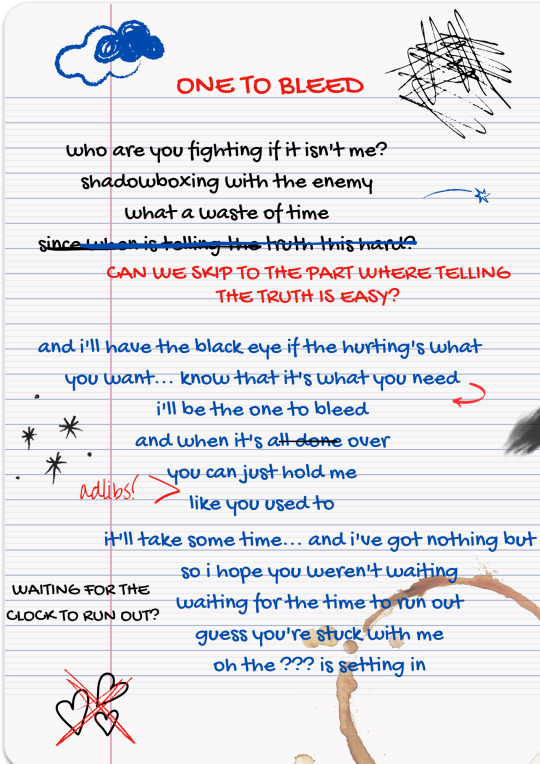 ONE TO BLEED
who are you fighting if it isn't me?
shadowboxing with the enemy
what a waste of time
since when is telling the truth this hard?
CAN WE SKIP TO THE PART WHERE TELLING
THE TRUTH IS EASY?
and i'll have the black eye if the hurting's what
you want... know that it's what you need
i'll be the one to bleed
and when it's all done over
you can just hold me
adlibs!
like you used to
it'll take some time... and i've got nothing but
so i hope you weren't waiting
WAITING FOR THE
CLOCK TO RUN OUT?
waiting for the time to run out
guess you're stuck with me
oh the ??? is setting in